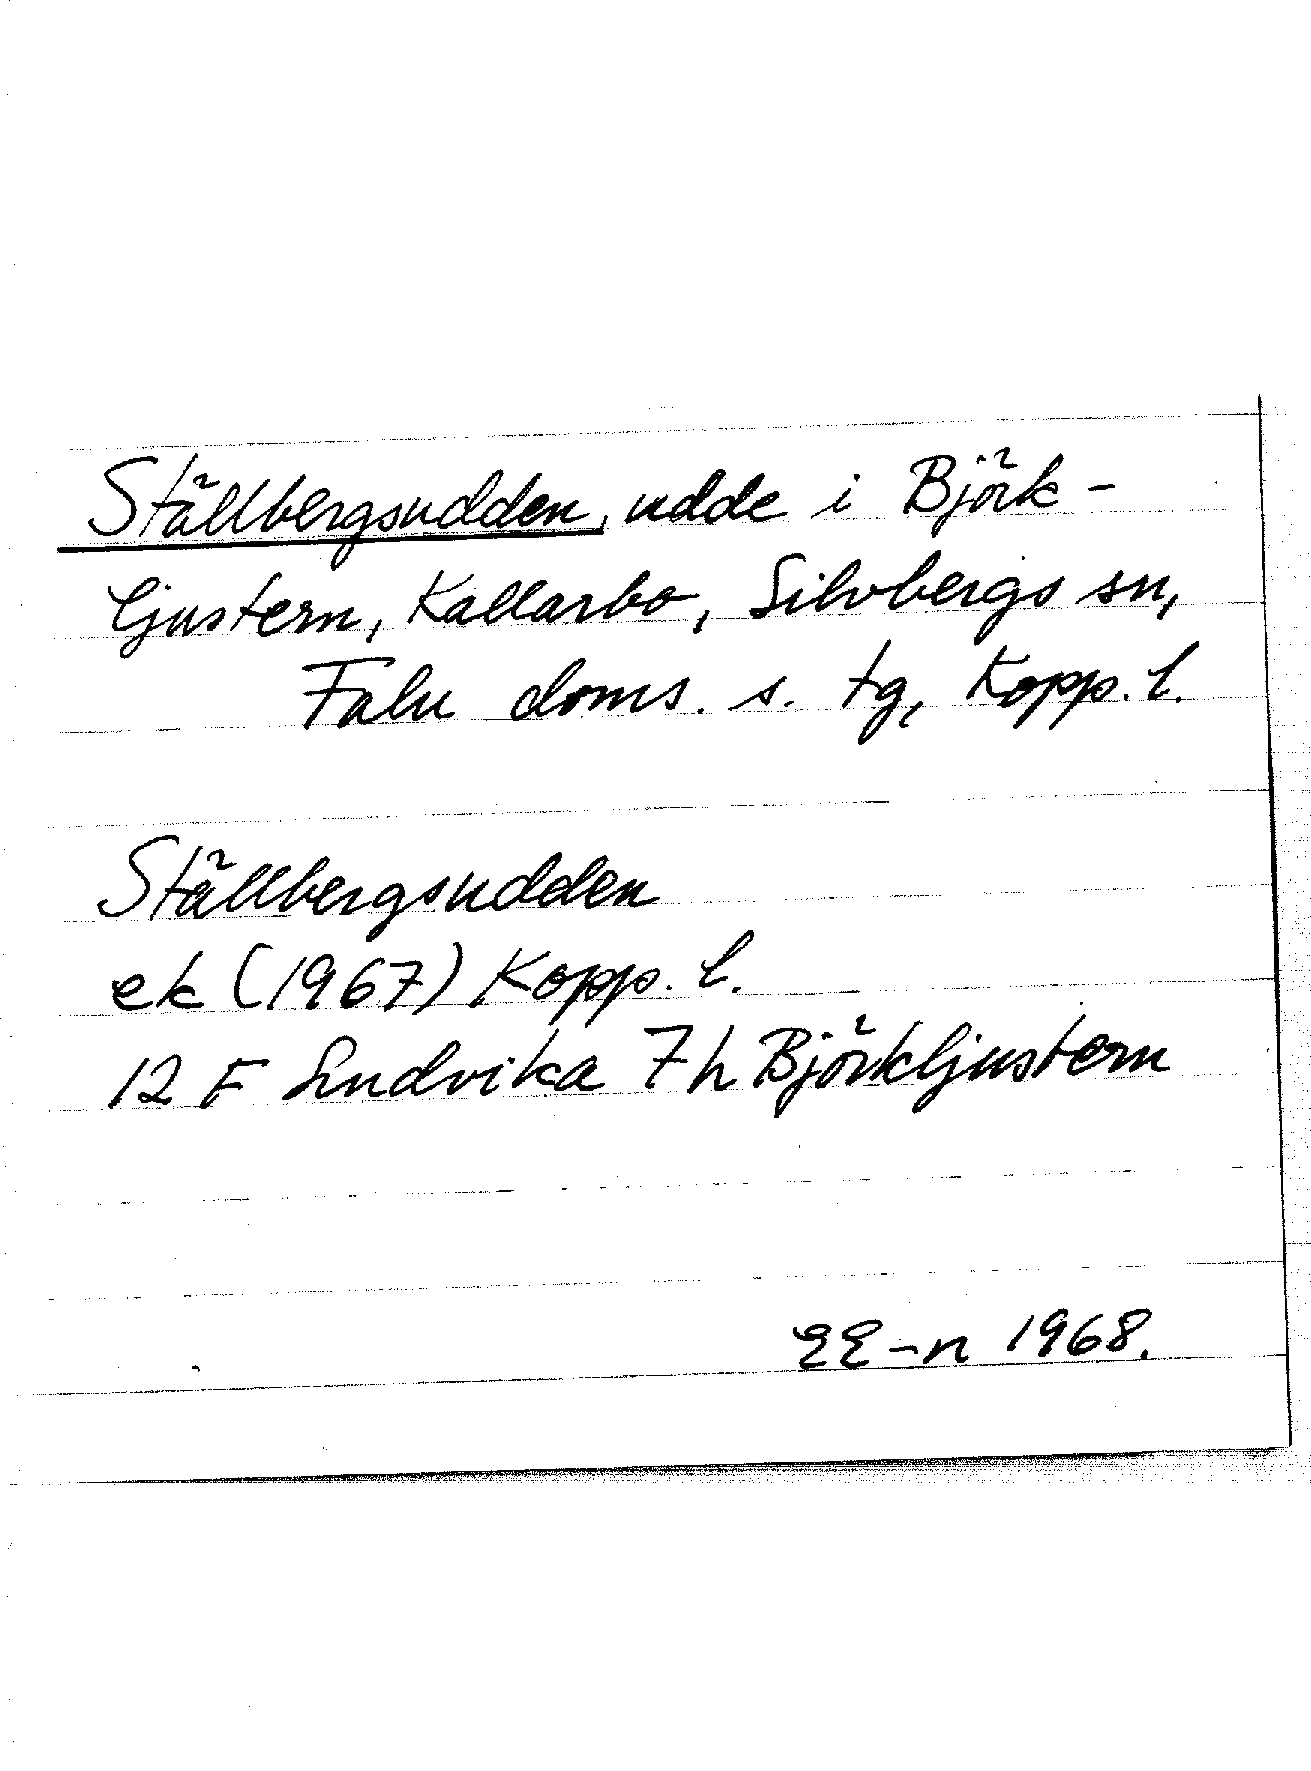 Ställbergsudden, udde i Björk-
ljustern, Kallarbo, Silvbergs sn,
Falu doms. s. tg, Kopp. l.
Ställbergsudden
ek (1967) Kopp. l.
12 F Ludvika 7 h Björkljustern
EE-n 1968.